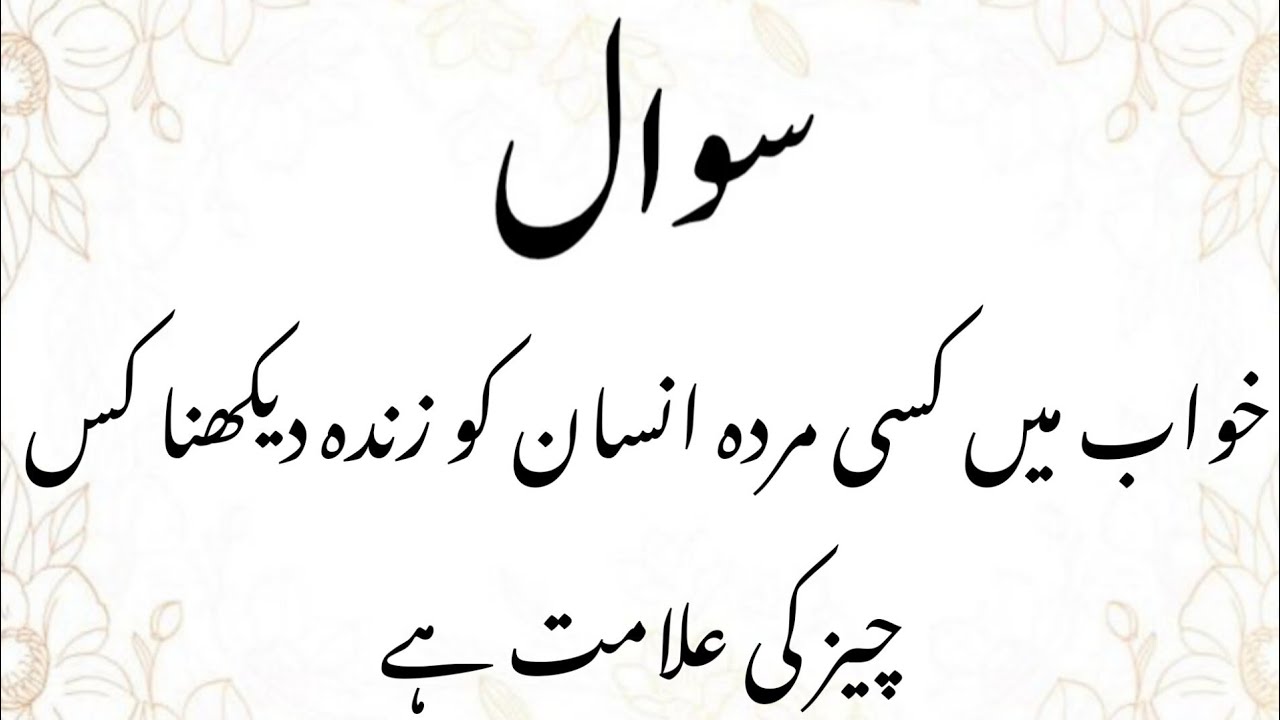 سوال
خواب میں کسی مردہ انسان کو زندہ دیکھنا کس
چیز کی علامت ہے